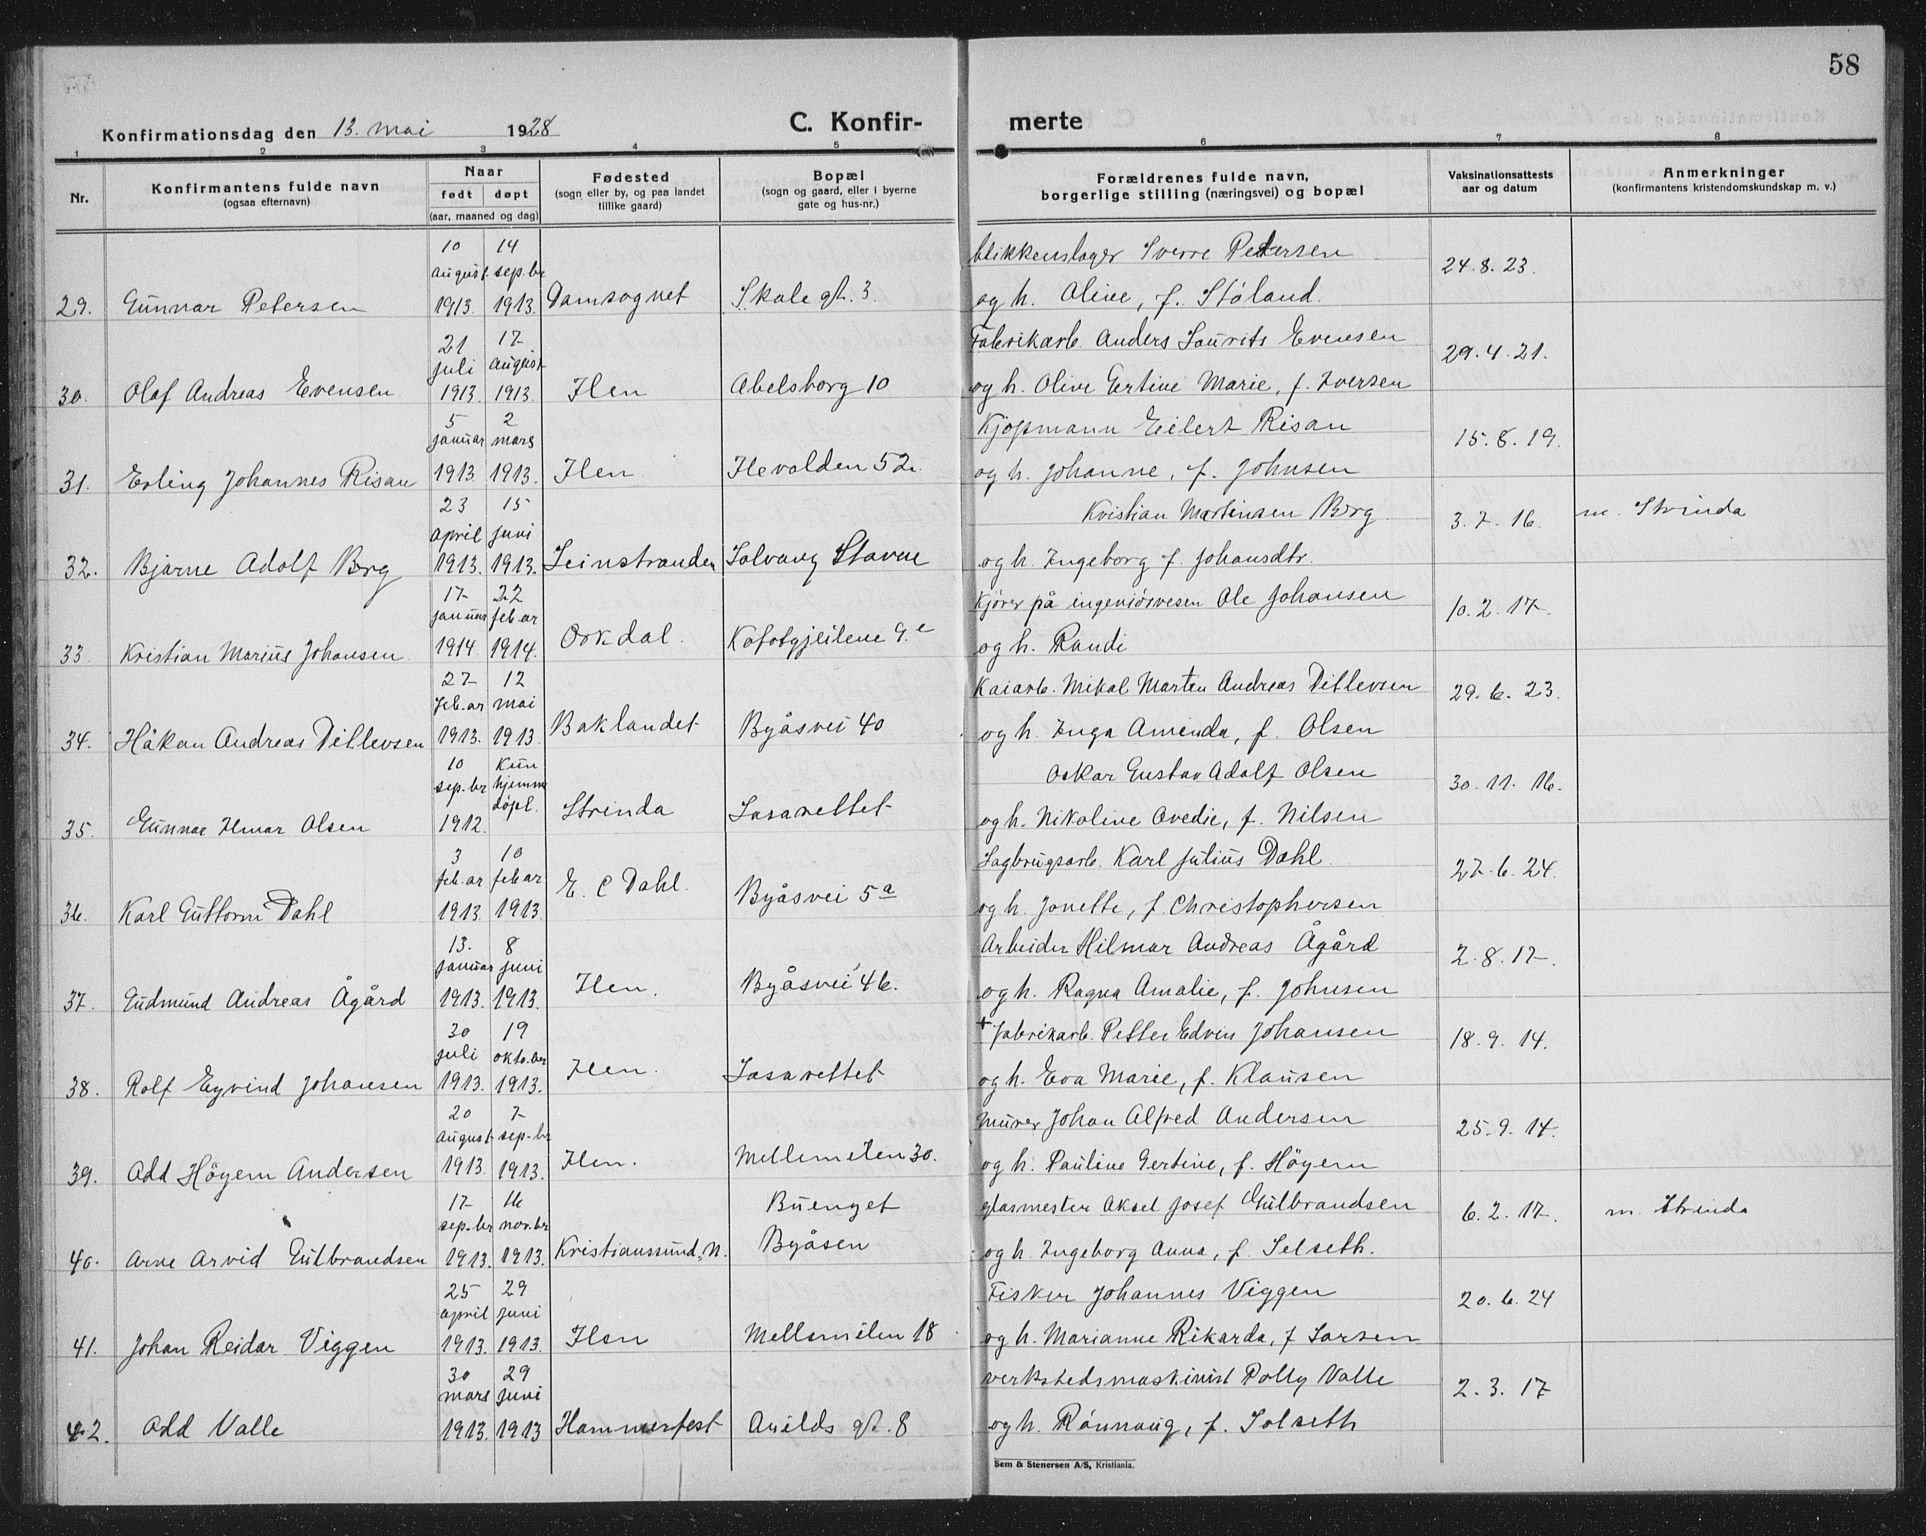 58
Konfirmationsdag den 13. mai 1928
C. Konfir- merte
1 2 3 4 5 6 7 8
Nr.
Konfirmantens fulde navn
(ogsaa efternavn)
Naar
født døpt
(aar, maaned og dag)
Fødested
(sogn eller by, og paa landet
tillike gaard)
Bopæl
(sogn og gaard, eller i byerne
gate og hus-nr.)
Forældrenes fulde navn,
borgerlige stilling (næringsvei) og bopæl
Vaksinationsattests
aar og datum
Anmerkninger
(konfirmantens kristendomskundskap m. v.)
10 14 blikkenslager Sverre Petersen
august sep.br 24.8.23.
29. Gunnar Petersen 1913. 1913. Domsognet Skole gt. 3. og h. Olive, f. Støland.
21 17 Fabrikarb. Anders Laurits Evensen
juli august 29.4.21.
30. Olaf Andreas Evensen 1913. 1913. Ilen Abelsborg 10 og h. Olive Gertine Marie, f. Iversen
5 2 Kjøpmann Eilert Risan
januar mars 15.8.19.
31. Erling Johannes Risan 1913. 1913. Ilen Ilevolden 52. og h. Johanne, f. Johnsen
23 15 Kristian Martinsen Berg m. Strinda
april juni 3.7.16.
32. Bjarne Adolf Berg 1913. 1913. Leinstranden Solvang Stavne og h. Ingeborg f. Johansdtr.
17 22 Kjører på ingeniørvesen Ole Johansen
januar feb.ar 10.2.17.
33 Kristian Marius Johansen. 1914. 1914. Orkdal. 9.c og h. Randi
27 12 Kaiarb. Mikal Marten Andreas Ditlevsen
feb.ar mai 29.6.23.
34. Håkon Andreas Ditlevsen 1913. 1913. Baklandet Byåsvei 40 og h. Inga Amenda, f. Olsen
10 Kun Oskar Gustav Adolf Olsen
sep.br hjemme døpt. 30.11.16.
35. Gunnar Ilmar Olsen 1912. Strinda Lasarettet og h. Nikoline Ovedie, f. Nilsen
3 10 Sagbrugsarb. Karl Julius Dahl.
feb.ar feb.ar 27.6.24.
36. Karl Guttorm Dahl 1913. 1913. E. C Dahl. Byåsvei 5a og h. Jonette, f. Christophersen
13. 8 Arbeider Hilmar Andreas Ågård
januar juni 2.8.17.
37. Gudmund Andreas Ågård 1913. 1913. Ilen. Byåsvei 46. og h. Ragna Amalie, f. Johnsen
30 19 + fabrikarb. Petter Edvin Johansen
juli okto.ber 18.9.14.
38. Rolf Eyvind Johansen 1913. 1913. Ilen. Lasarettet og h. Eva Marie, f. Klausen
20 7 Murer Johan Alfred Andersen
august sep.br 25.9.14.
39. Odd Höyem Andersen 1913. 1913. Ilen. Mellemilen 30. og h. Pauline Gertine, f. Höyem
17 16 Buenget glasmester Aksel Josef Gulbrandsen m. Strinda
sep.br nov.br 6.2.17.
40. Arne Arvid Gulbrandsen 1913. 1913. Kristianssund, N. Byåsen og h. Ingeborg Anna, f. Selseth.
25 29 Fisker Johannes Viggen
april juni 20.6.24
41. Johan Reidar Viggen 1913. 1913. Ilen Mellemilen 18. og h. Marianne Rikarda, f Larsen
30 29 verkstedsmaskinist Polly Valle
mars juni 2.3.17
42. Odd Valle 1913. 1913 Hammerfest Arilds gt. 8 og h. Rönnaug, f. Solseth
Sem & Stenersen A/S, Kristiania.